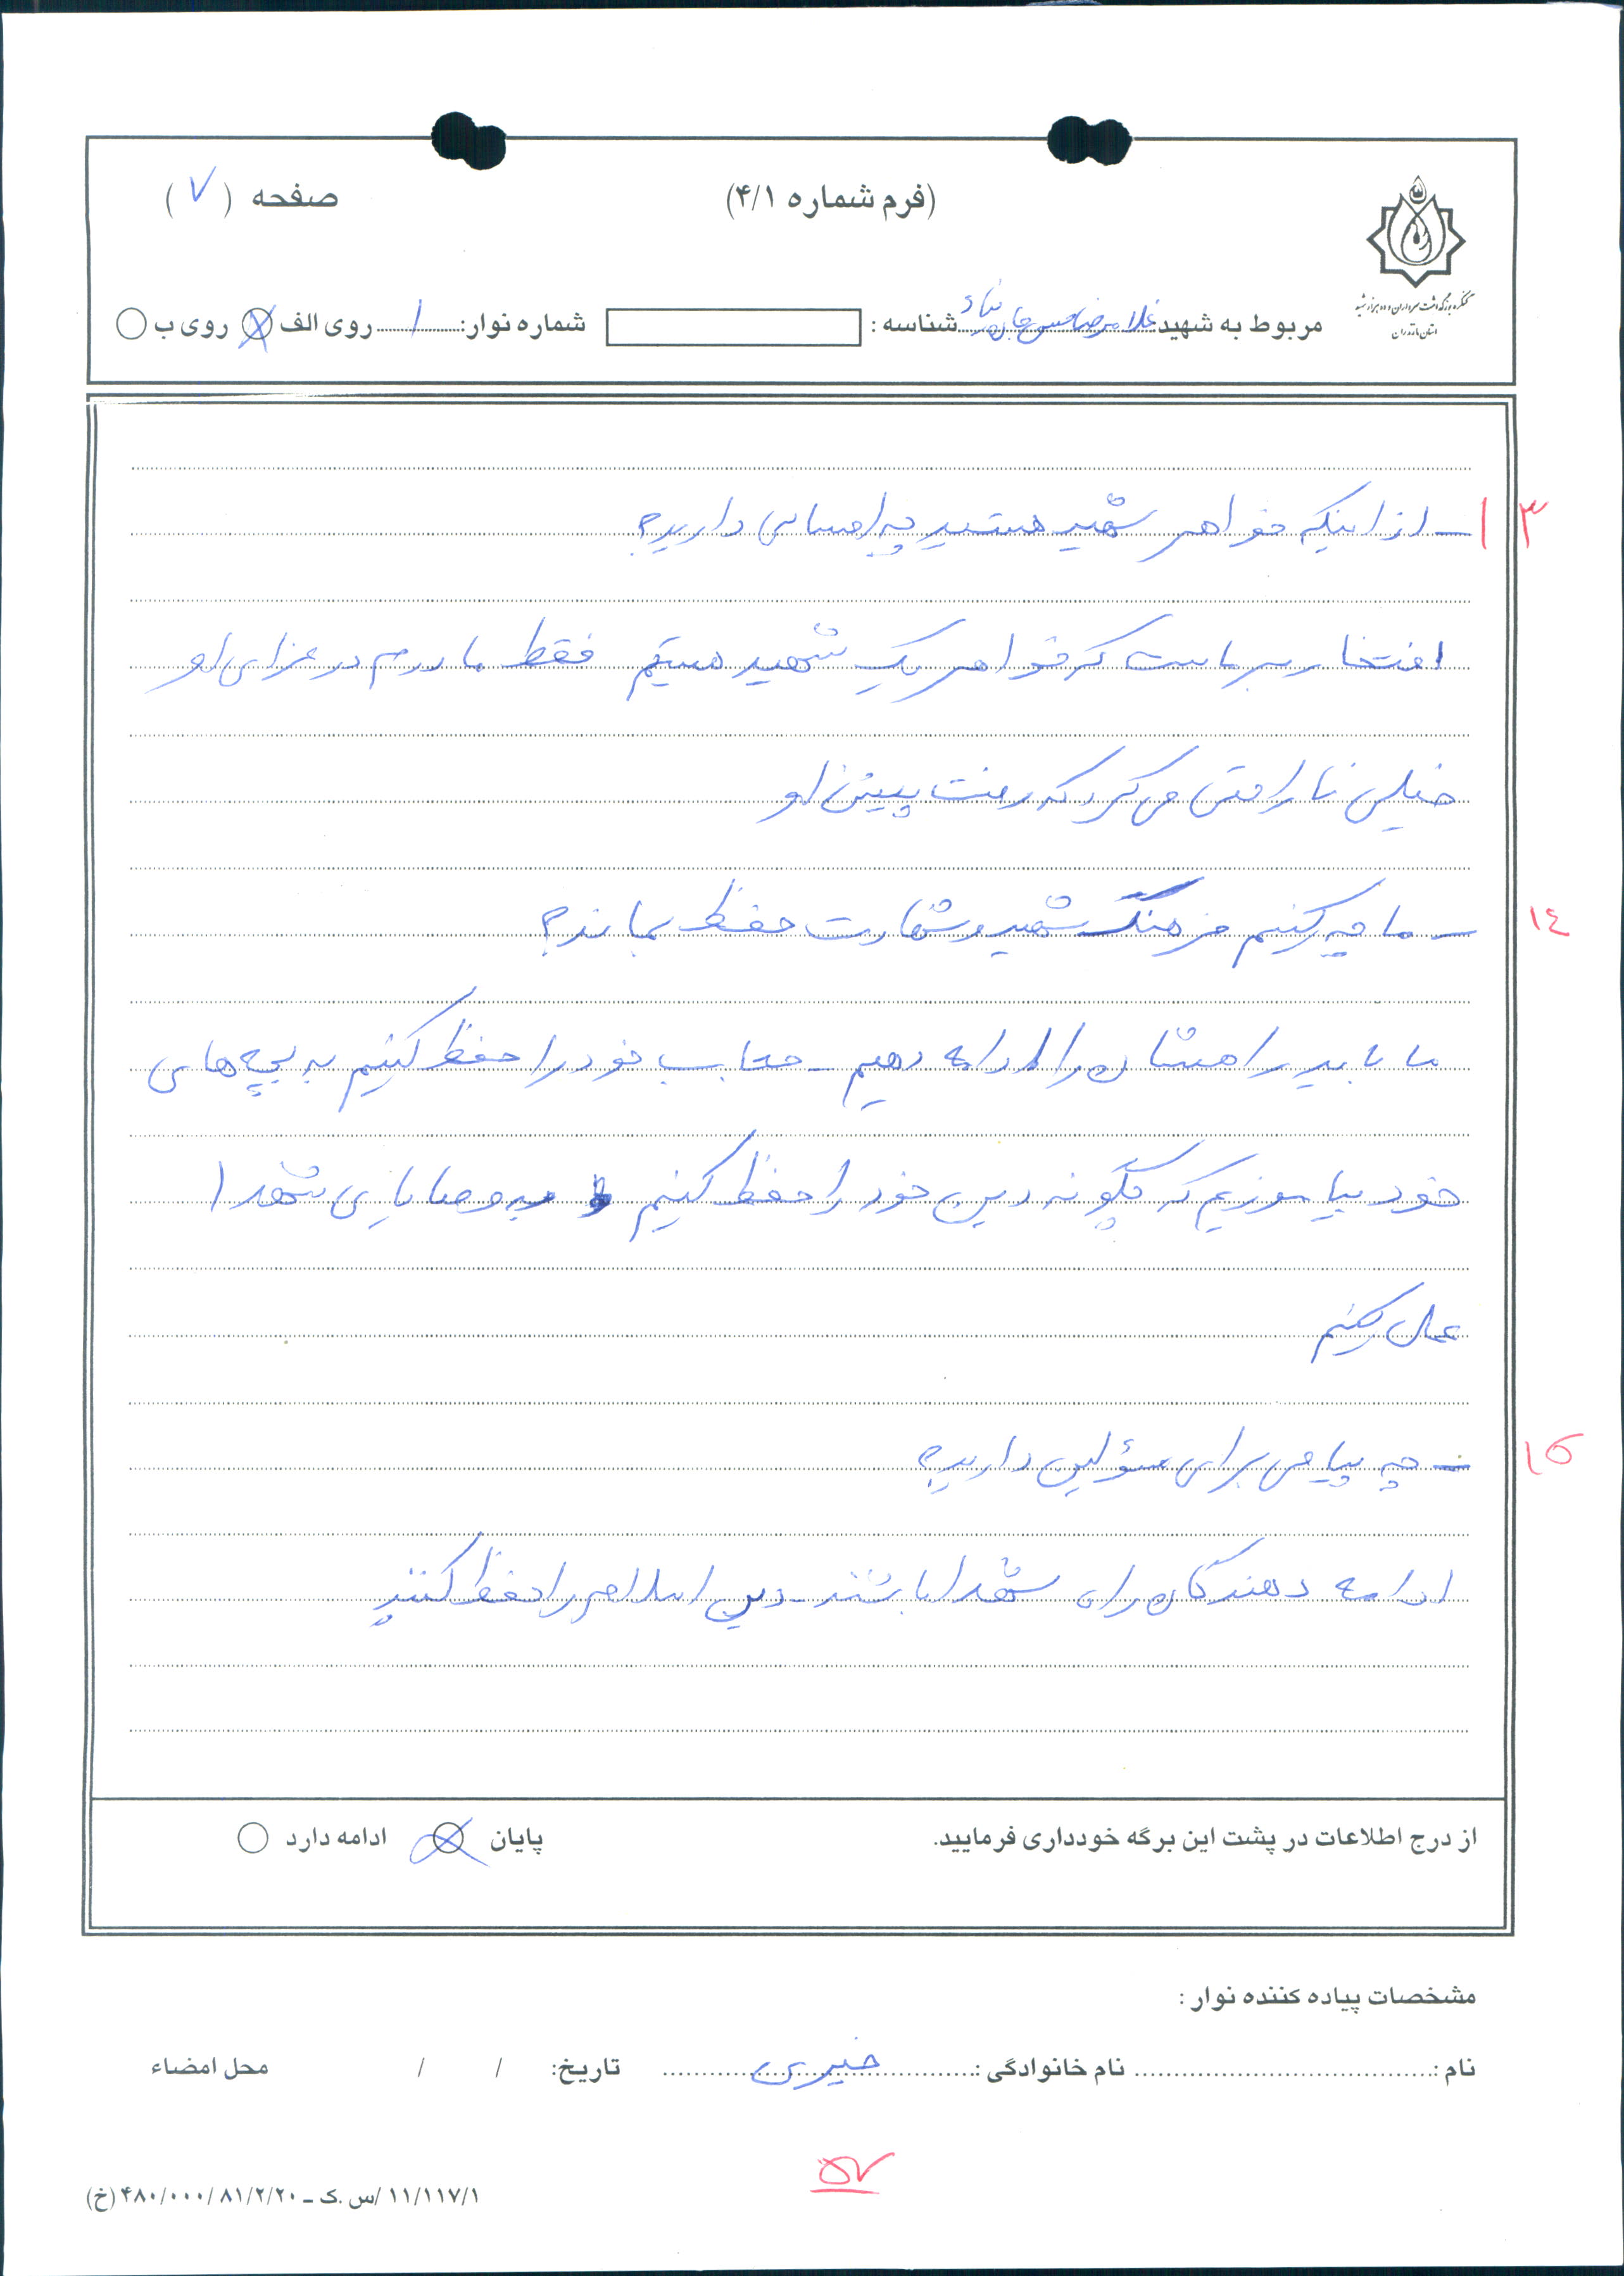 (فرم شماره ۴/۱)
صفحه (۷)
کنگره بزرگداشت سرداران و ده هزار شهید
استان مازندران
مربوط به شهید غلامرضا شناسه : شماره نوار: ۱ روی الف روی ب
۱۳ - از اینکه خواهر شهید هستید چه احساسی دارید؟
افتخار بر ماست که خواهر یک شهید هستیم فقط مادرم در عزای او
خیلی ناراحتی می کرد که رفت پیش او
۱٤ - ما چه کنیم فرهنگ شهید و شهادت حفظ بماند؟
ما باید راهشان را ادامه دهیم - حجاب خود را حفظ کنیم به بچه های
خود بیاموزیم که چگونه دین خود را حفظ کنیم و به وصایای شهدا
عمل کنیم
۱۵ - چه پیامی برای مسؤلین دارید؟
ادامه دهندگان راه شهدا باشند - دین اسلام را حفظ کنند
از درج اطلاعات در پشت این برگه خودداری فرمایید. پایان ادامه دارد
مشخصات پیاده کننده نوار :
نام : نام خانوادگی : خیری تاریخ: / / محل امضاء
۵۷
۱۱/۱۱۷/۱ /س .ک – ۴۸۰/۰۰۰/۸۱/۲/۲۰ (خ)